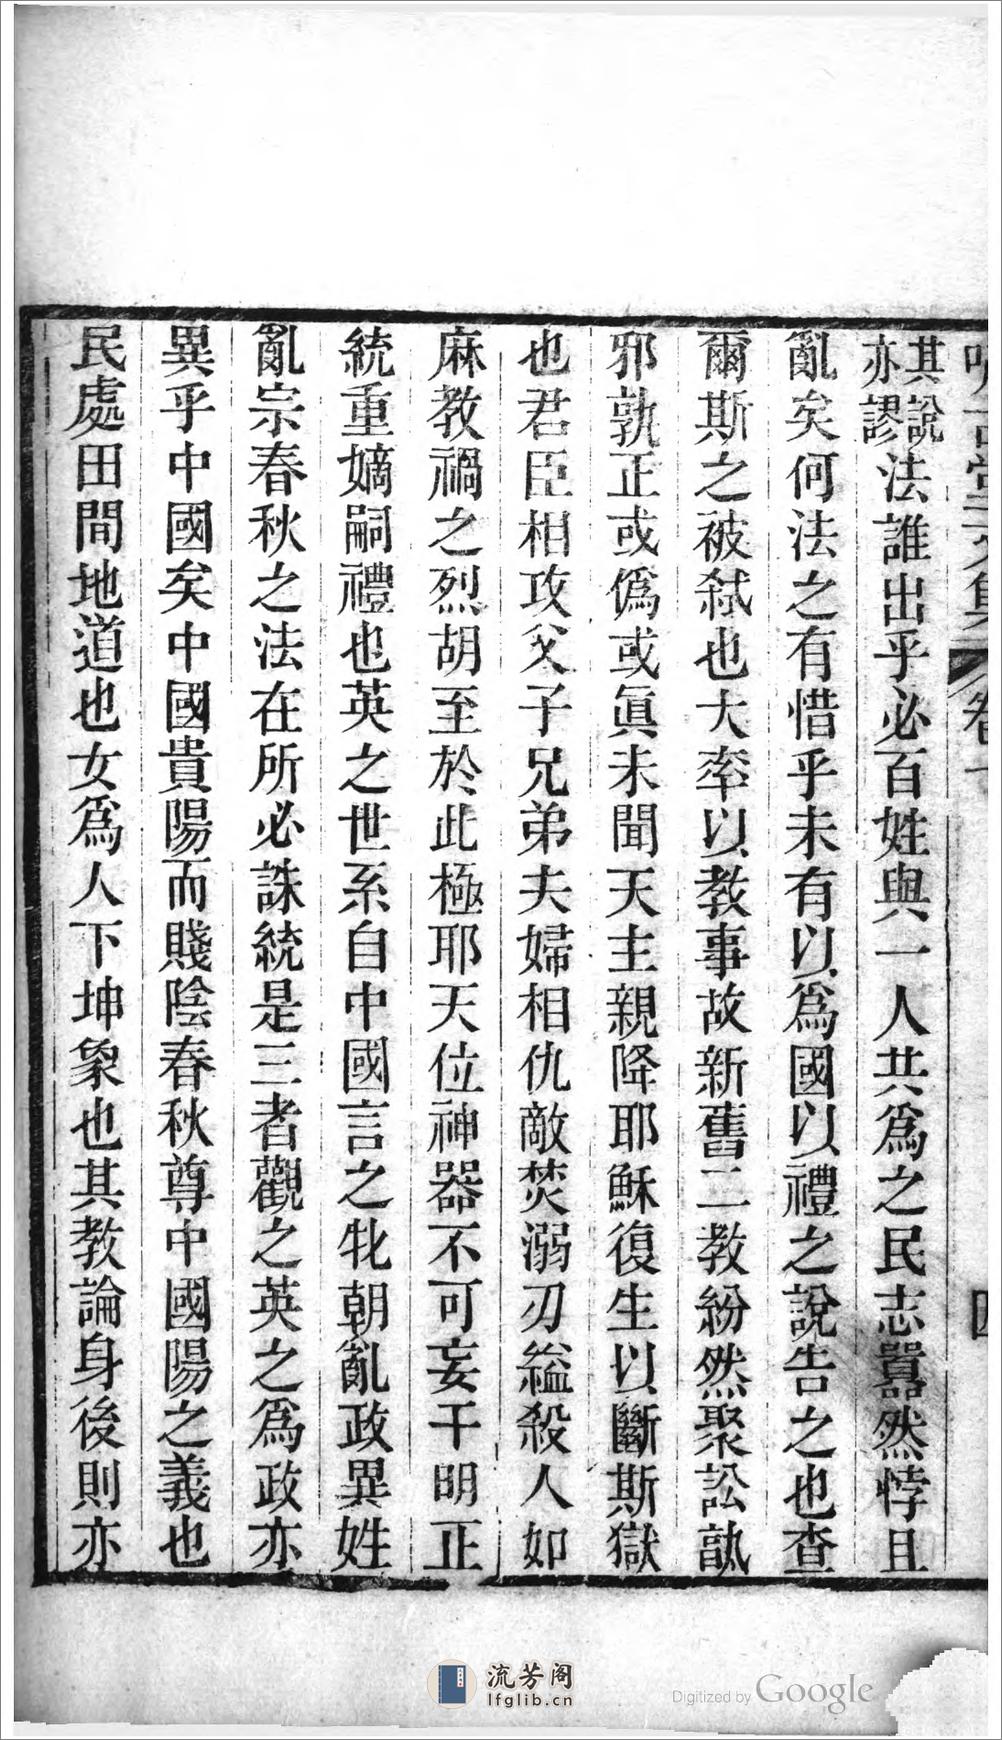 其說亦謬法誰出乎必百姓與一人共爲之民志囂然悖且
亂矣何法之有惜乎未有以爲國以禮之說告之也查
爾斯之被弑也大率以教事故新舊二教紛然聚訟孰
邪孰正或僞或眞未聞天主親降耶穌復生以斷斯獄
也君臣相攻父子兄弟夫婦相仇敵焚溺刃縊殺人如
麻教禍之烈胡至於此極耶天位神器不可妄干明正
統重嫡嗣禮也英之世系自中國言之牝朝亂政異姓
亂宗春秋之法在所必誅統是三者觀之英之爲政亦
異乎中國矣中國貴陽而賤陰春秋尊中國陽之義也
民處田間地道也女爲人下坤象也其教論身後則亦
流芳阁
lfglib.cn
Digitized by Google